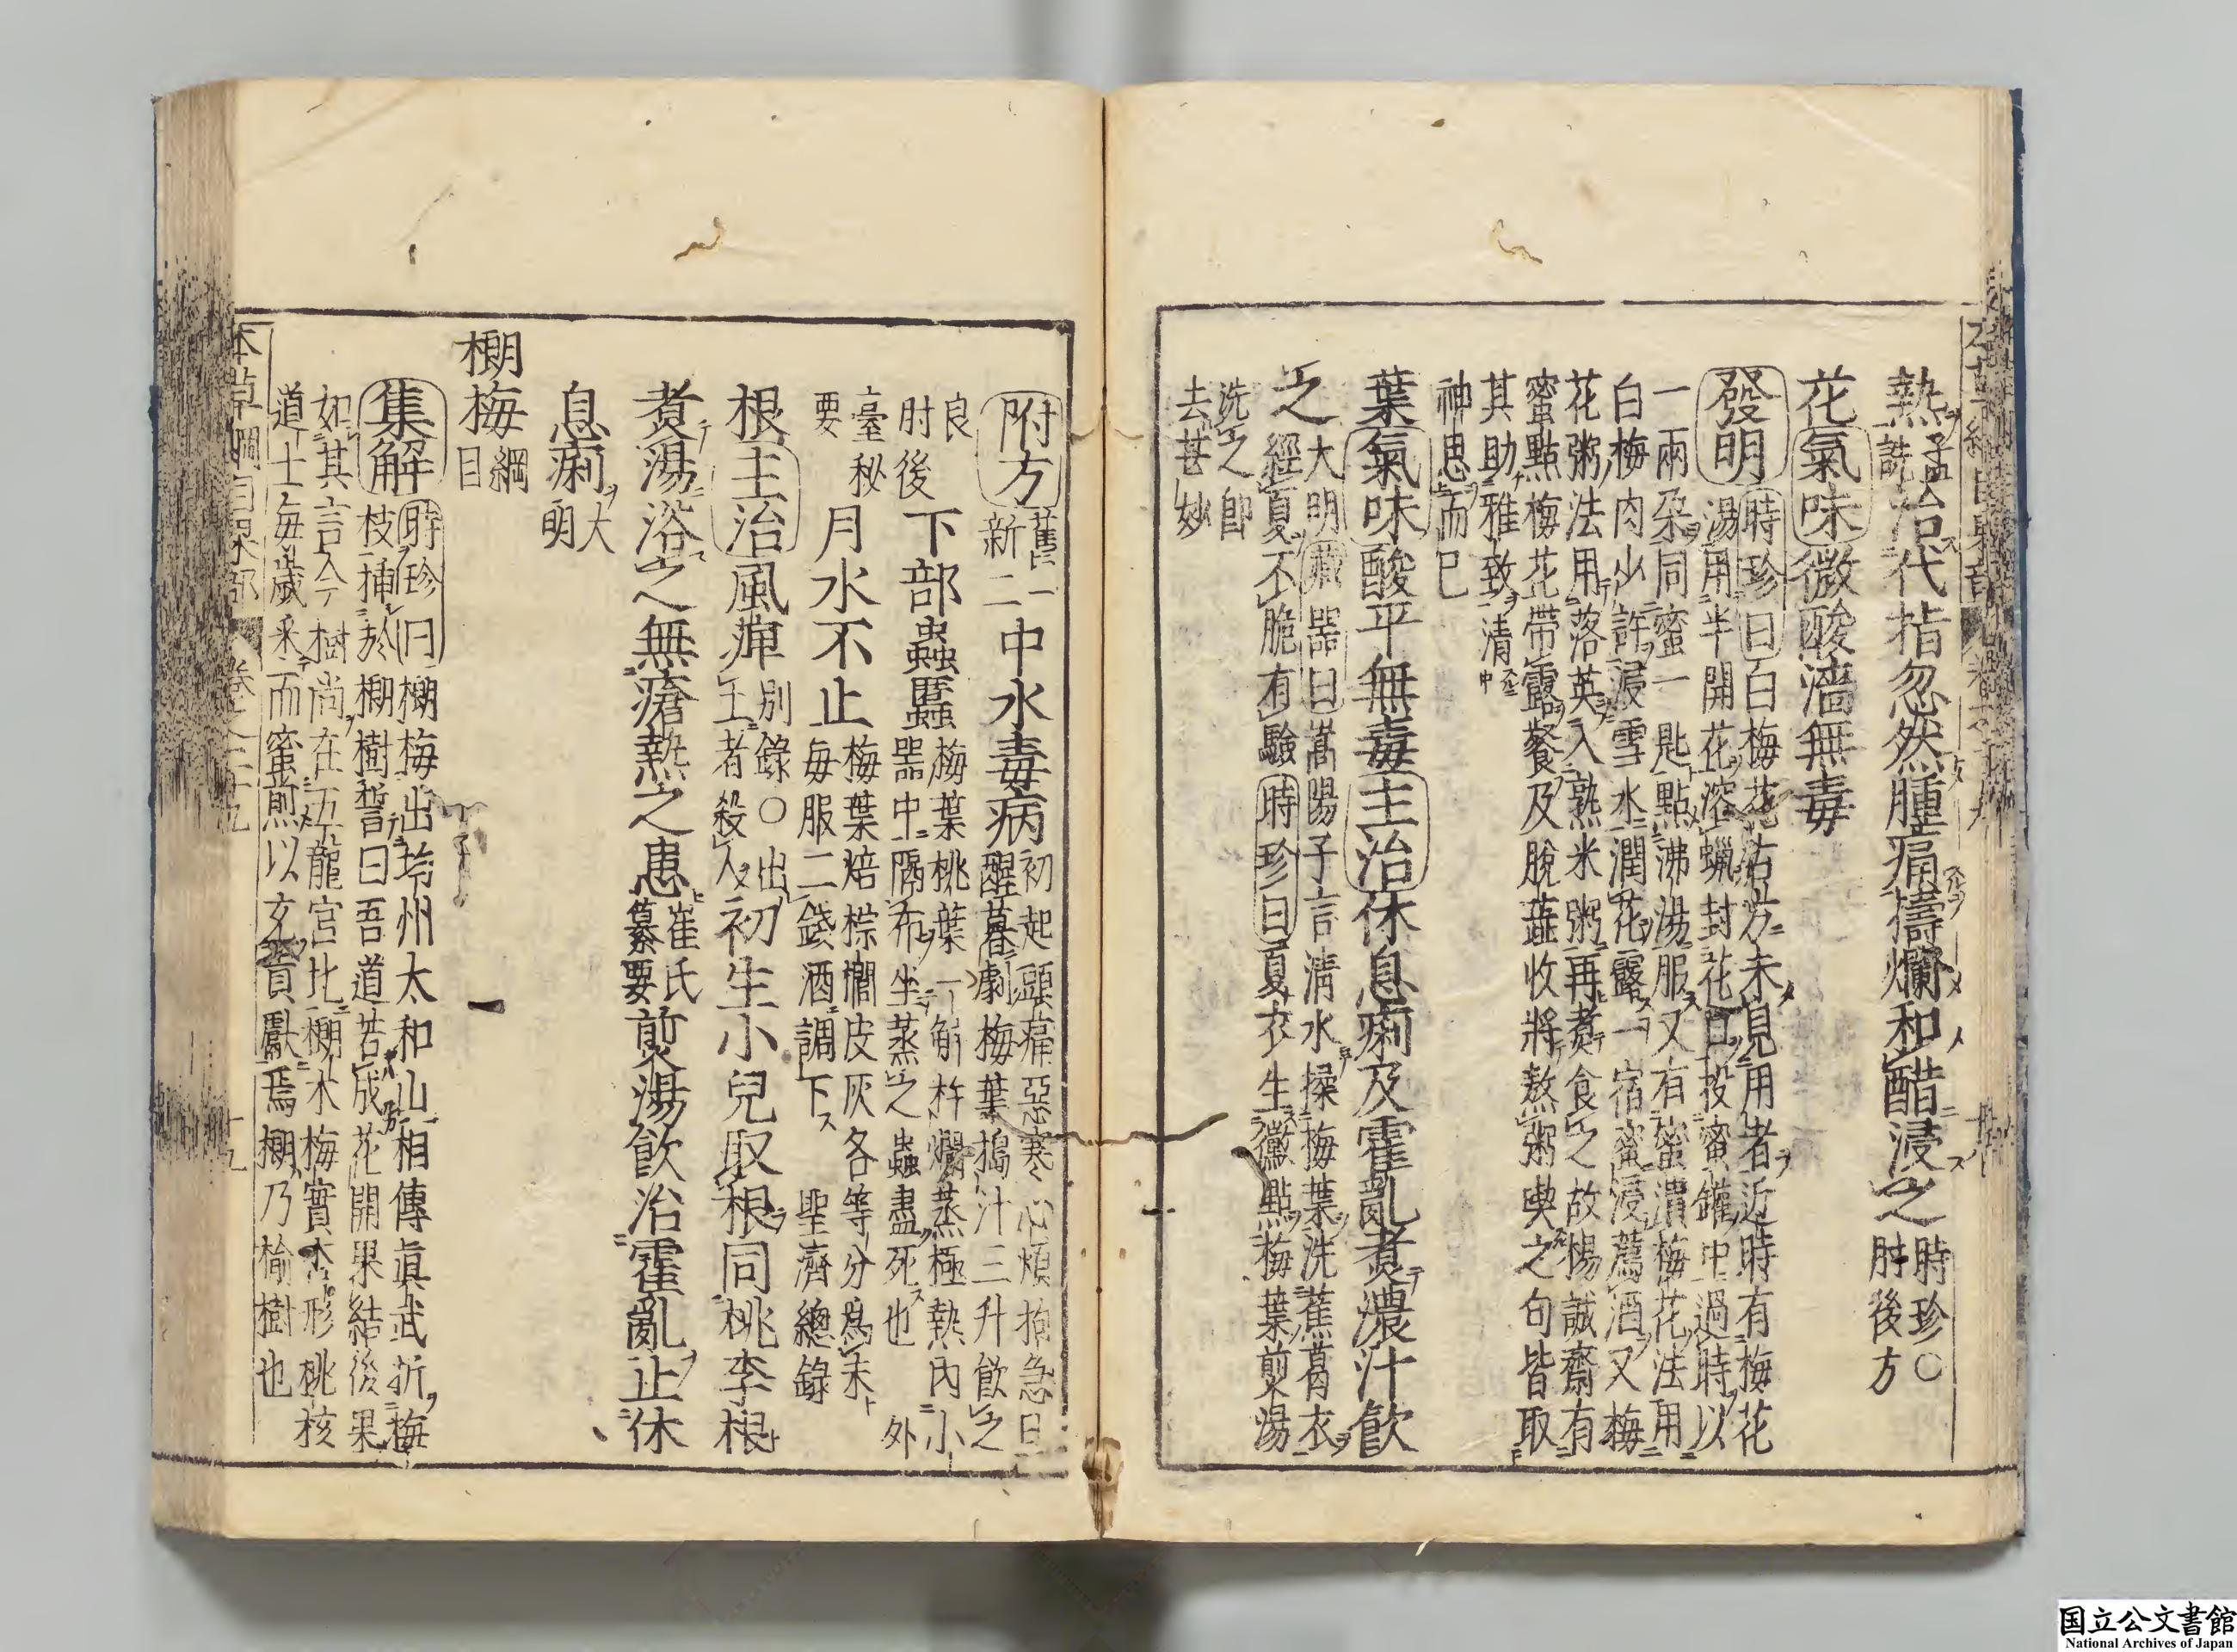 熱孟詵治代指忽然腫痛擣爛和醋浸之時珍○肘後方
花氣味微酸濇無毒
發明時珍曰白梅花古方未見用者近時有梅花
湯用半開花溶蠟封花口投蜜罐中過時以
一兩朶同蜜一匙點沸湯服又有蜜漬梅花法用
白梅肉少許浸雪水潤花露一宿蜜浸薦酒又梅
花粥法用落英入熟米粥再煮食之故楊誠齋有
蜜點梅花帶露餐及脫蘂收將熬粥喫之句皆取
其助雅致清
神思而已
葉氣味酸平無毒主治休息痢及霍亂煮濃汁飲
之大明藏器曰嵩陽子言清水揉梅葉洗蕉葛衣
經夏不脆有驗時珍曰夏衣生黴點梅葉煎湯
洗之卽
去甚妙
附方舊一新二中水毒病初起頭痛惡寒心煩拘急旦
醒暮劇梅葉搗汁三升飲之
良肘後下部蟲䘌梅葉桃葉一斛杵爛蒸極熱內小
器中隔布坐蒸之蟲盡死也外
臺秘要月水不止梅葉焙椶櫚皮灰各等分爲末
每服二錢酒調下聖濟總錄
根主治風痺別錄○出土者殺人初生小兒取根同桃李根
煮湯浴之無瘡熱之患崔氏纂要煎湯飲治霍亂止休
息痢大明
㮏梅綱目
集解時珍曰㮏梅出均州太和山相傳眞武折梅
枝揷於㮏樹誓曰吾道若成花開果結後果
如其言今樹尚在五龍宮北㮏木梅實杏形桃核
道士每歲采而蜜煎以充貢獻焉㮏乃楡樹也
国立公文書館
National Archives of Japan